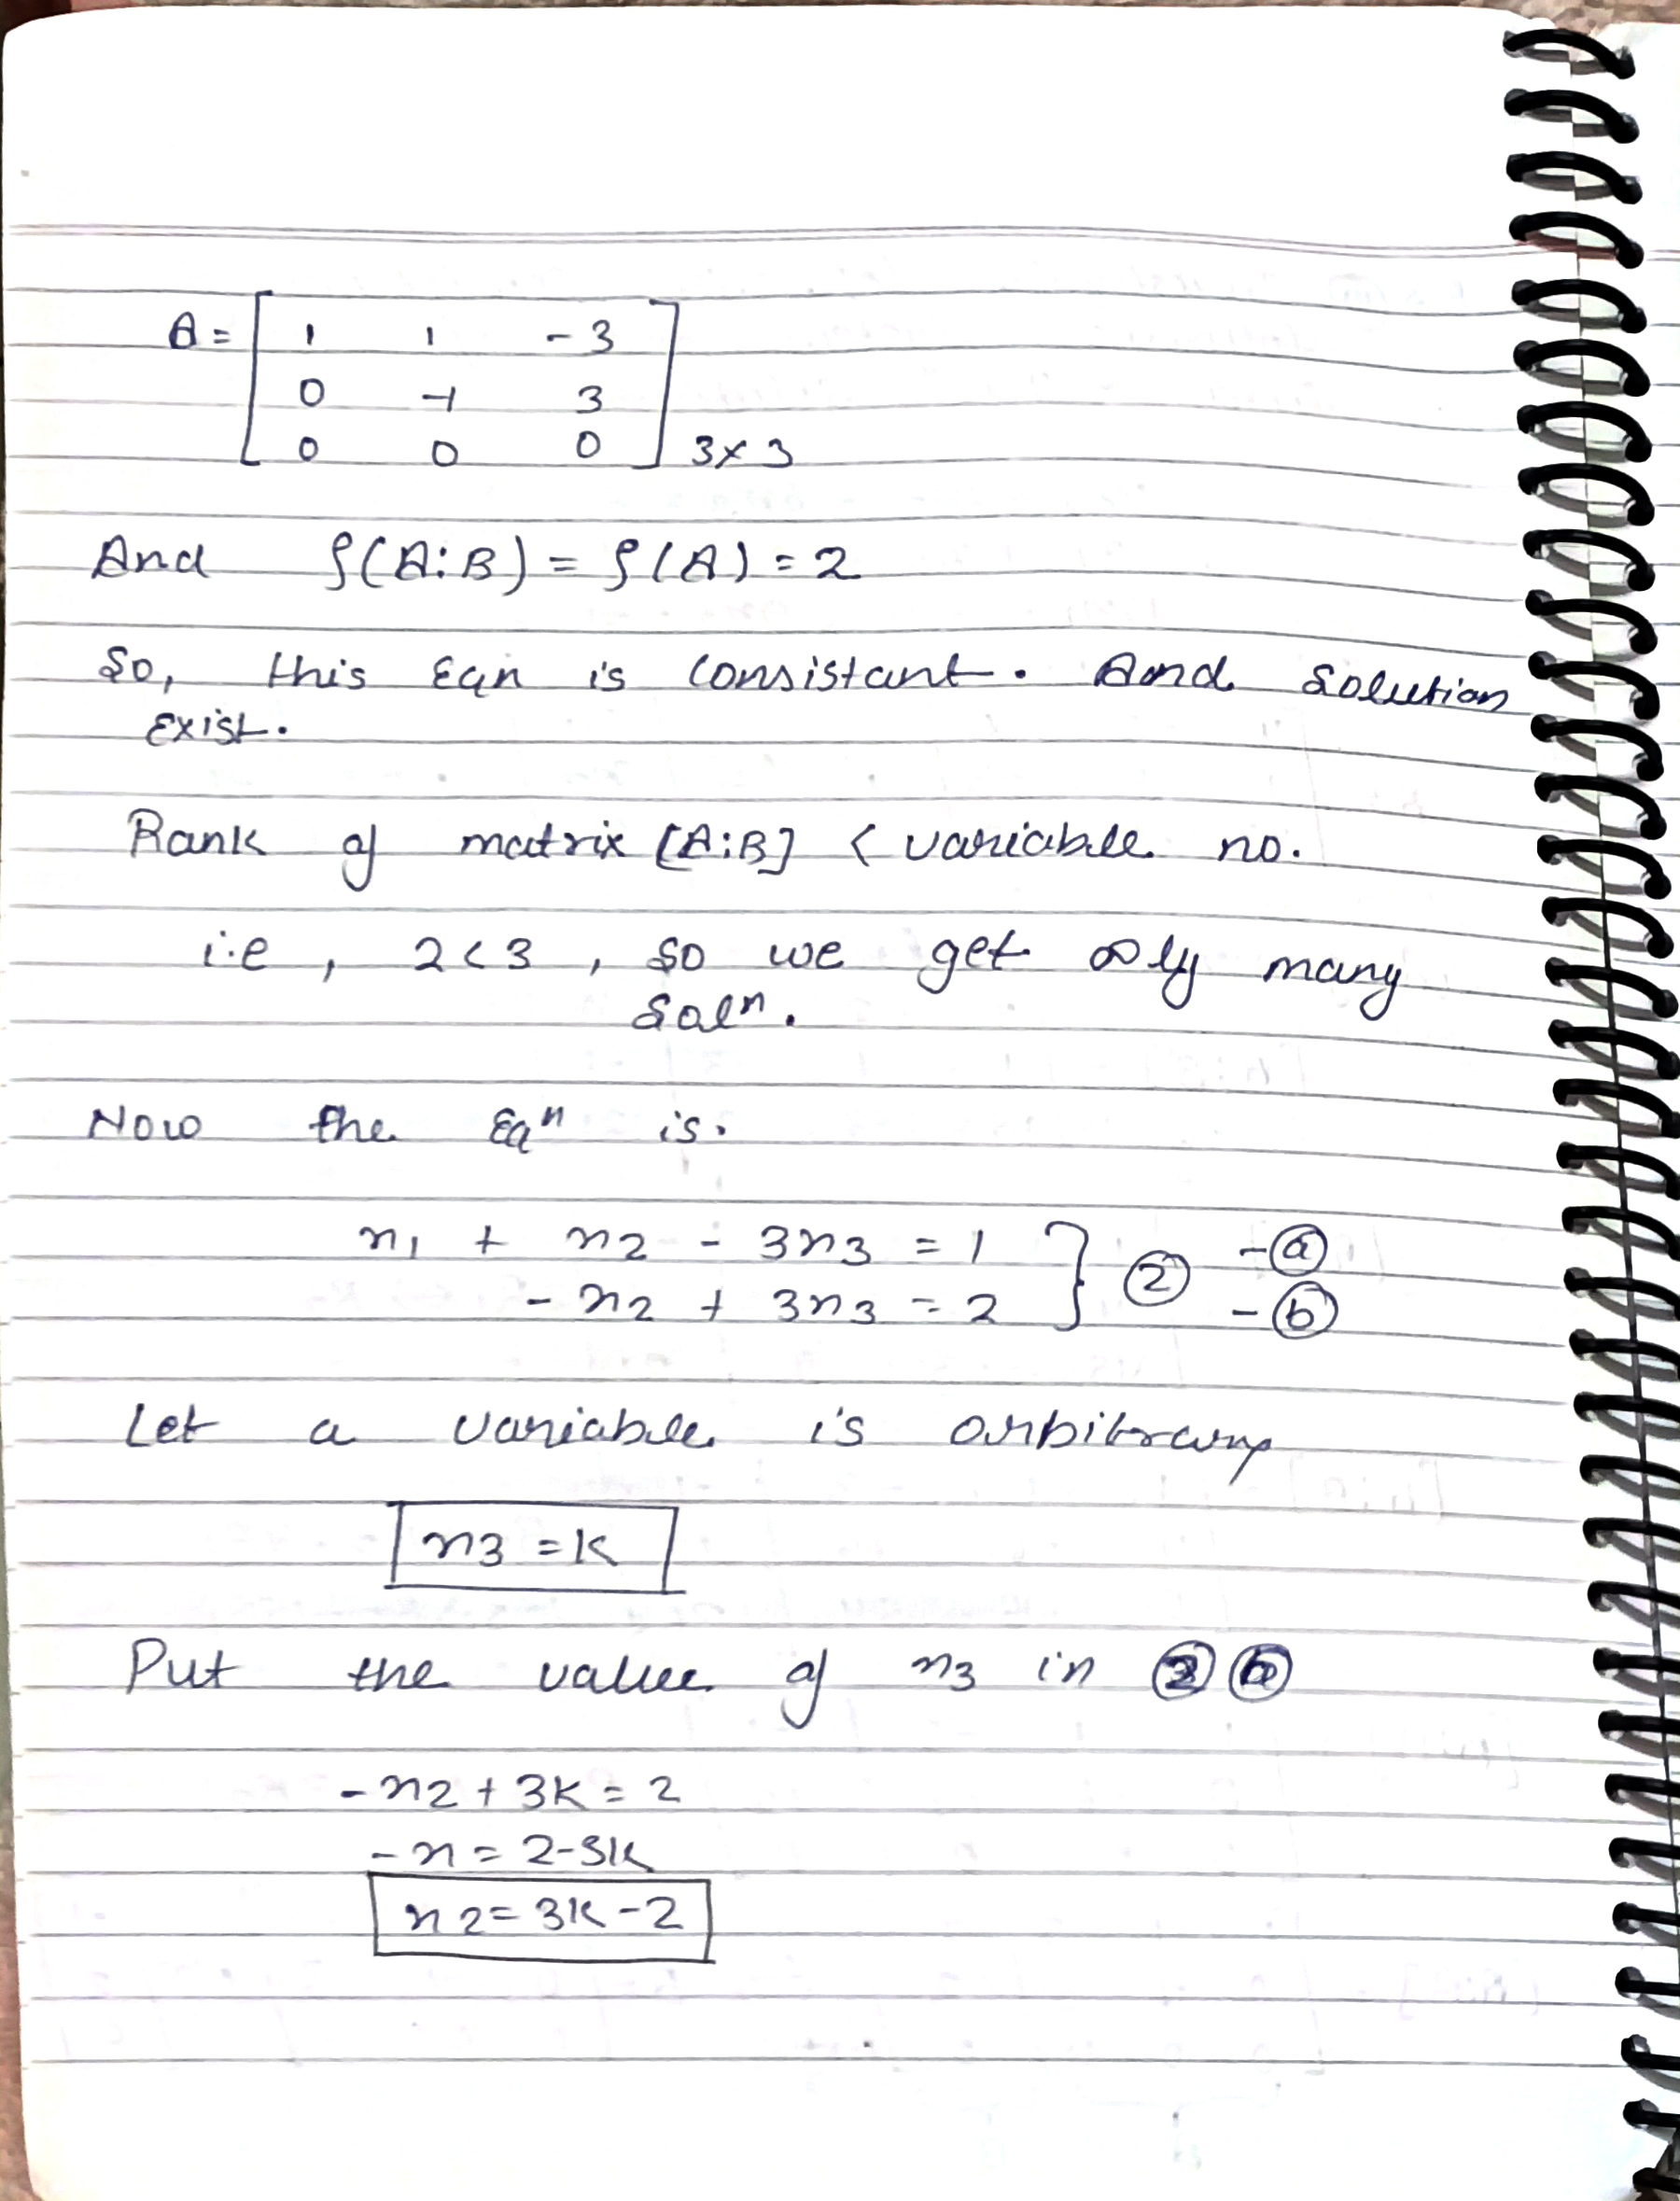 A = [ 1 1 -3
0 -1 3
0 0 0 ] 3×3
And ρ(A:B) = ρ(A) = 2
So, this Eqn is consistant. And Solution
Exist.
Rank of matrix [A:B] < variable no.
i.e , 2<3 , so we get ∞ly many
Solⁿ.
Now the Eqⁿ is.
x1 + x2 - 3x3 = 1 } ② -ⓐ
- x2 + 3x3 = 2 -ⓑ
Let a variable is arbitrary
x3 = K
Put the value of x3 in ② ⓑ
-x2 + 3K = 2
-x = 2-3K
x2 = 3K-2